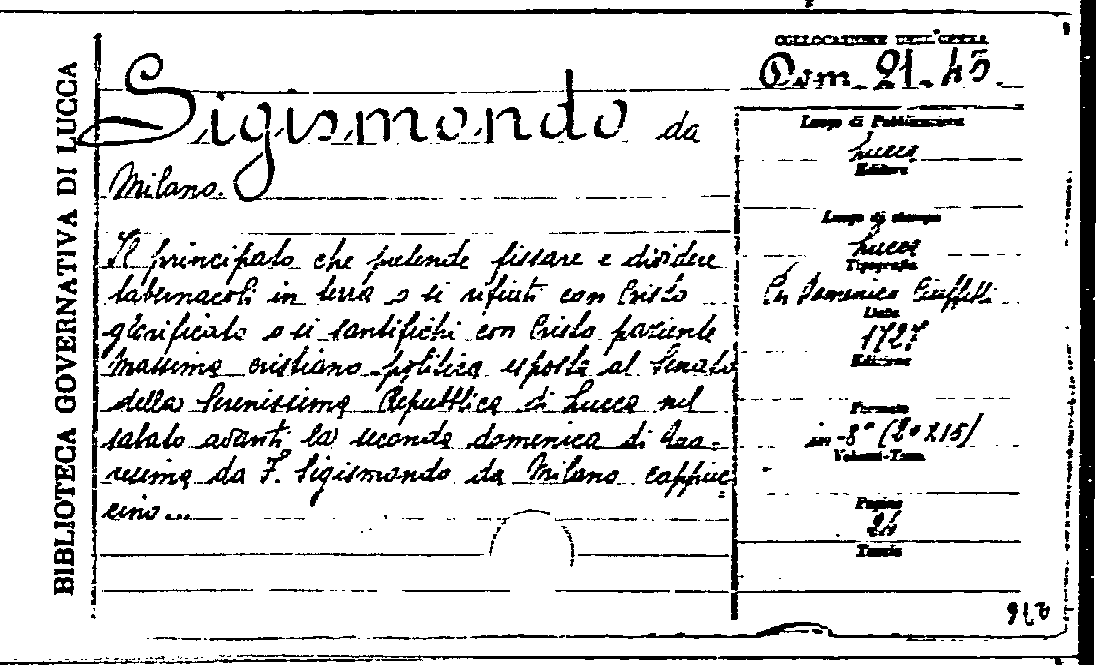 BIBLIOTECA GOVERNATIVA DI LUCCA
COLLOCAZIONE DELL'OPERA
Sigismondo da
Milano.
Il principato che pretende fissare e dividere
tabernacoli in terra o si rifiuti con Cristo
glorificato o si santifichi con Cristo paziente
Massima cristiano-politica esposta al Senato
della Serenissima Repubblica di Lucca nel
sabato avanti la seconda domenica di Qua=
resima da F. Sigismondo da Milano cappuc=
cino...
Luogo di Pubblicazione
Lucca
Editore
Luogo di stampa
Lucca
Tipografia
Per Domenico Ciuffetti
Data
1727
Edizione
Formato
in-8° (20x15)
Volumi-Tomi
Pagine
Tavole